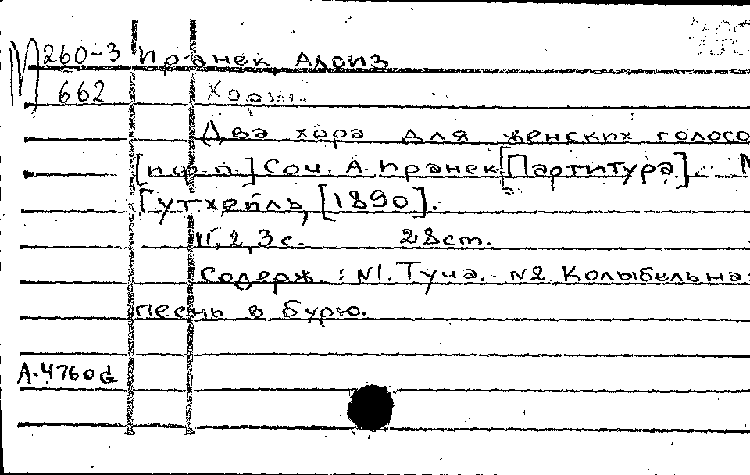 М 260-3 Пранек, Алоиз
662 Хоры.
Два хора для женских голосо
[п.ф-п.] Соч. А. Пранек [Партитура]. М
Гутхейль, [1890].
II, 2, 3 с. 28 ст.
Содерж.: №1. Туча. - №2 Колыбельная
песнь в бурю.
А-4760д